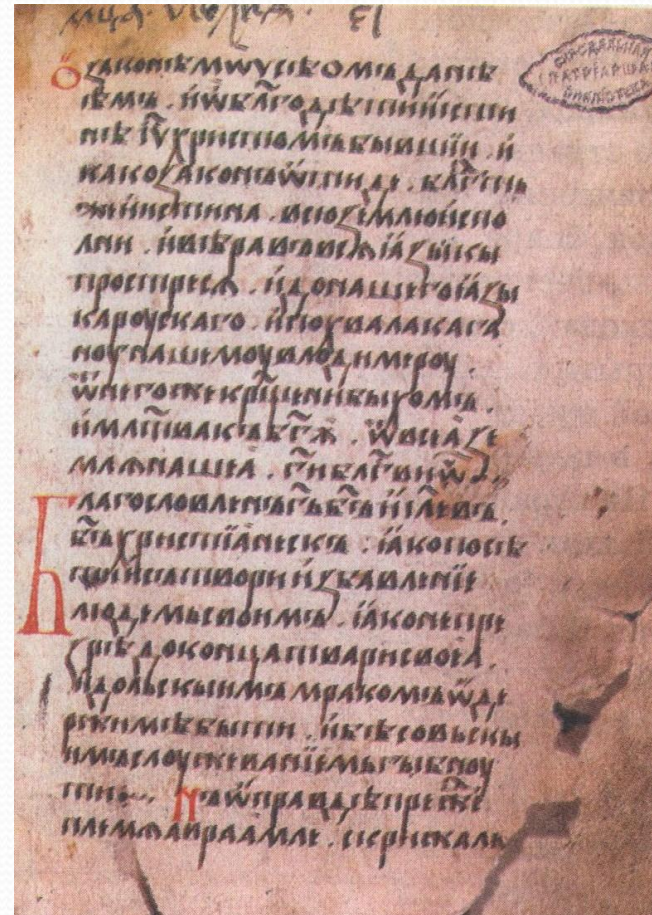 СѴНОДАЛЬНАЯ
(ПАТРІАРШАЯ)
БИБЛІОТЕКА
Ѻ законѣ мѡѵсіѣомъ данѣ
ѣмъ . и ѡ бл҃годѣти и истин
нѣ іс҃у христомъ бывшии . и
како законъ ѿиде . бл҃гть
же и истина всю землю испо
лни . и вѣра въ всѧ ıазыкы
прострeсѧ . и до нашего ıазы
ка роускаго . и похвала кага
ноу нашемоу влодимероу .
ѿ негоже кр҃щени быхомъ .
и мл҃тва къ б҃гѫ . ѿ всеа зе
млѧ нашеа . г҃и бл҃гви ѿ҃ч
Благословленъ г҃ь б҃ъ и҃зл҃евъ .
б҃ъ христіанескъ . ıако посѣ
ти и сътвори избавленіе
людемь своимъ . ıако не пре
зрѣ до конца твари своеа .
идольскыимъ мракомъ ѡдрь
жимѣ быти . и бѣсовьскы
имъ слоугованіемь гыбноу
ти . Нъ ѡправдѣ прежⷣе
племѧ авраамле . скрижаль